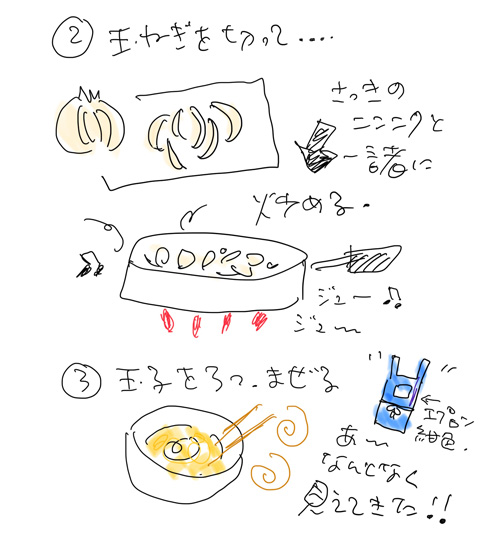 ② 玉ねぎを切って‥‥
さっきの
ニンニクと
一諸に
炒める.
ジュー♫
ジュー〜
③ 玉子を3つ. まぜる
←エプロン
紺色.
あ〜
なんとなく
見えてきた!!